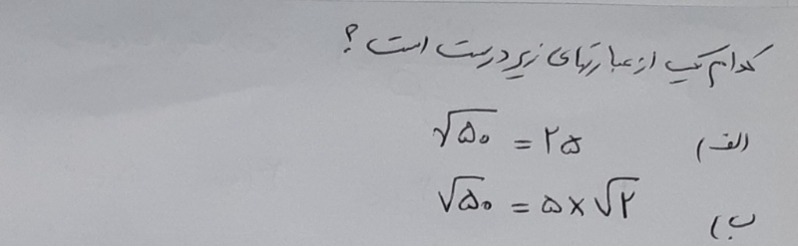 کدام یک از عبارتهای زیر درست است؟
الف) √۵۰ = ۲۵
ب) √۵۰ = ۵×√۲